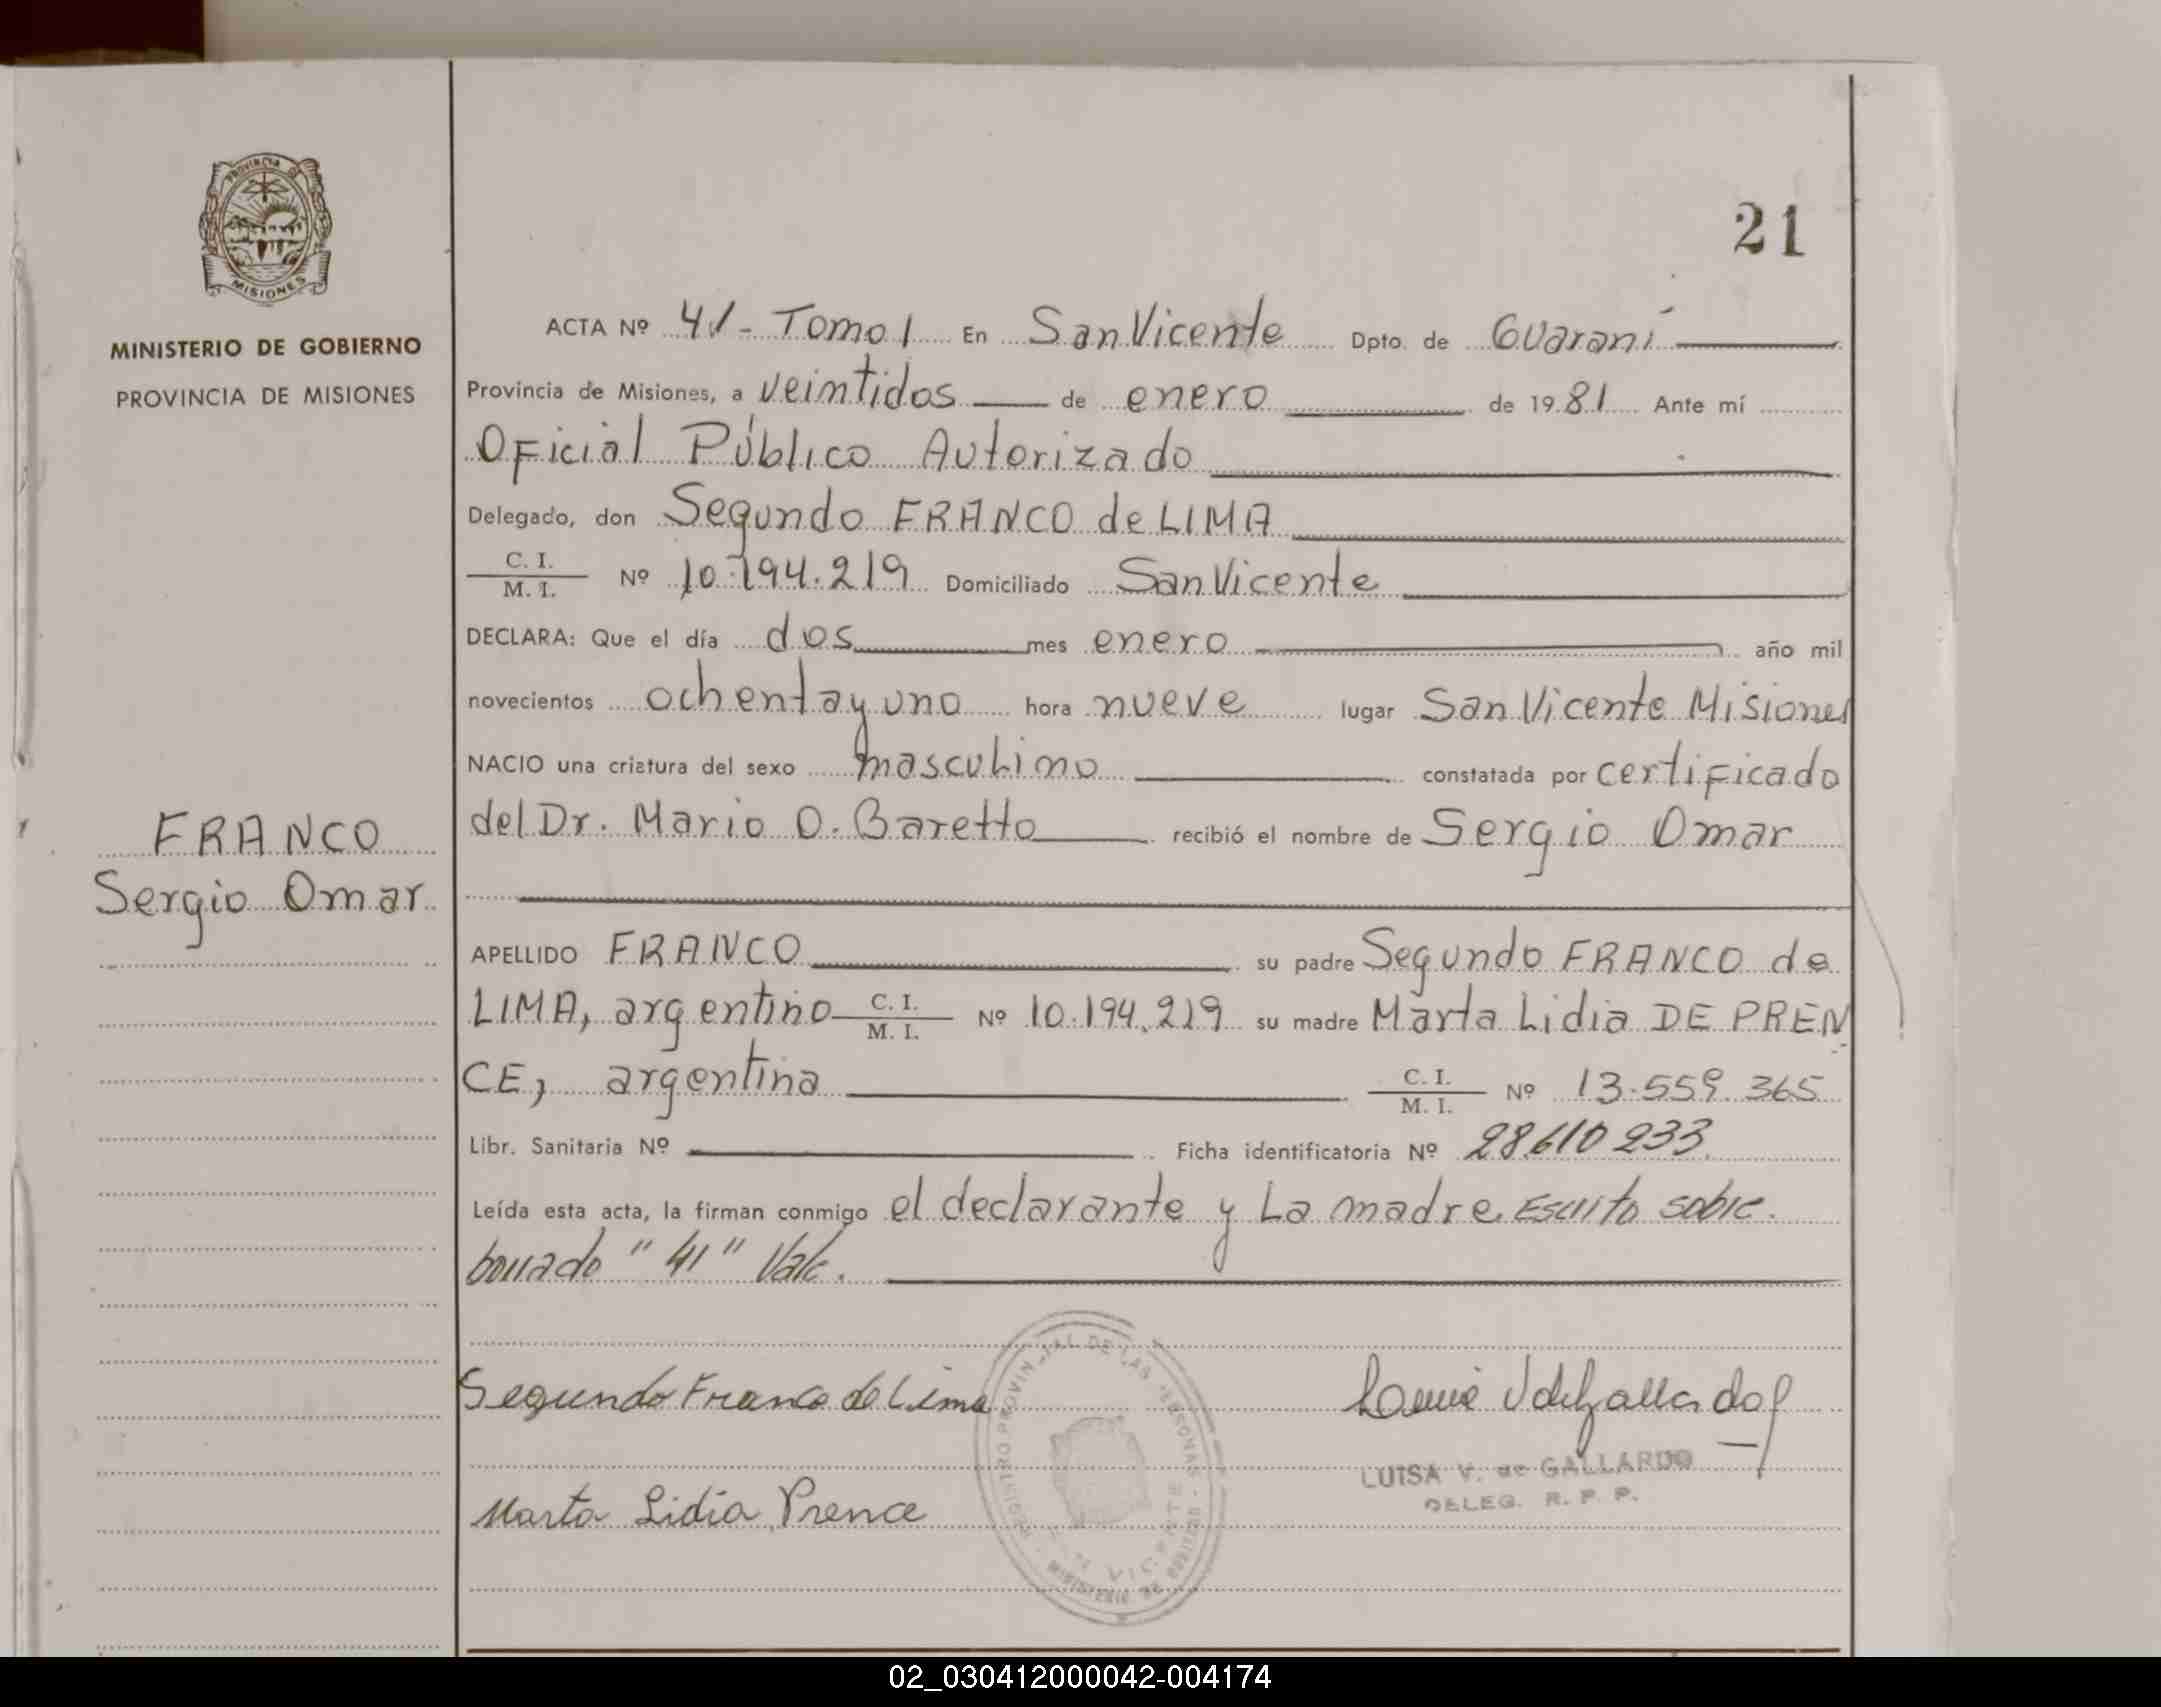 PROVINCIA DE
MISIONES
MINISTERIO DE GOBIERNO
PROVINCIA DE MISIONES
FRANCO
Sergio Omar
21
ACTA Nº 41 - Tomo 1 En San Vicente Dpto. de Guaraní
Provincia de Misiones, a veintidos de enero de 1981 Ante mí
Oficial Público Autorizado
Delegado, don Segundo FRANCO de LIMA
C. I.
M. I. Nº 10.194.219 Domiciliado San Vicente
DECLARA: Que el día dos mes enero año mil
novecientos ochenta y uno hora nueve lugar San Vicente Misiones
NACIO una criatura del sexo masculino constatada por certificado
del Dr. Mario O. Baretto recibió el nombre de Sergio Omar
APELLIDO FRANCO su padre Segundo FRANCO de
LIMA, argentino C. I. M. I. Nº 10.194.219 su madre Marta Lidia DE PREN
CE, argentina C. I. M. I. Nº 13.559.365
Libr. Sanitaria Nº Ficha identificatoria Nº 28.610 233.
Leída esta acta, la firman conmigo el declarante y la madre. Escrito sobre
borrado "41" Vale.
Segundo Franco de Lima
Marta Lidia Prence
REGISTRO PROVINCIAL DE LAS PERSONAS
MINISTERIO DE GOBIERNO
VICENTE
LUISA V. de GALLARDO
DELEG. R. P. P.
02_030412000042-004174